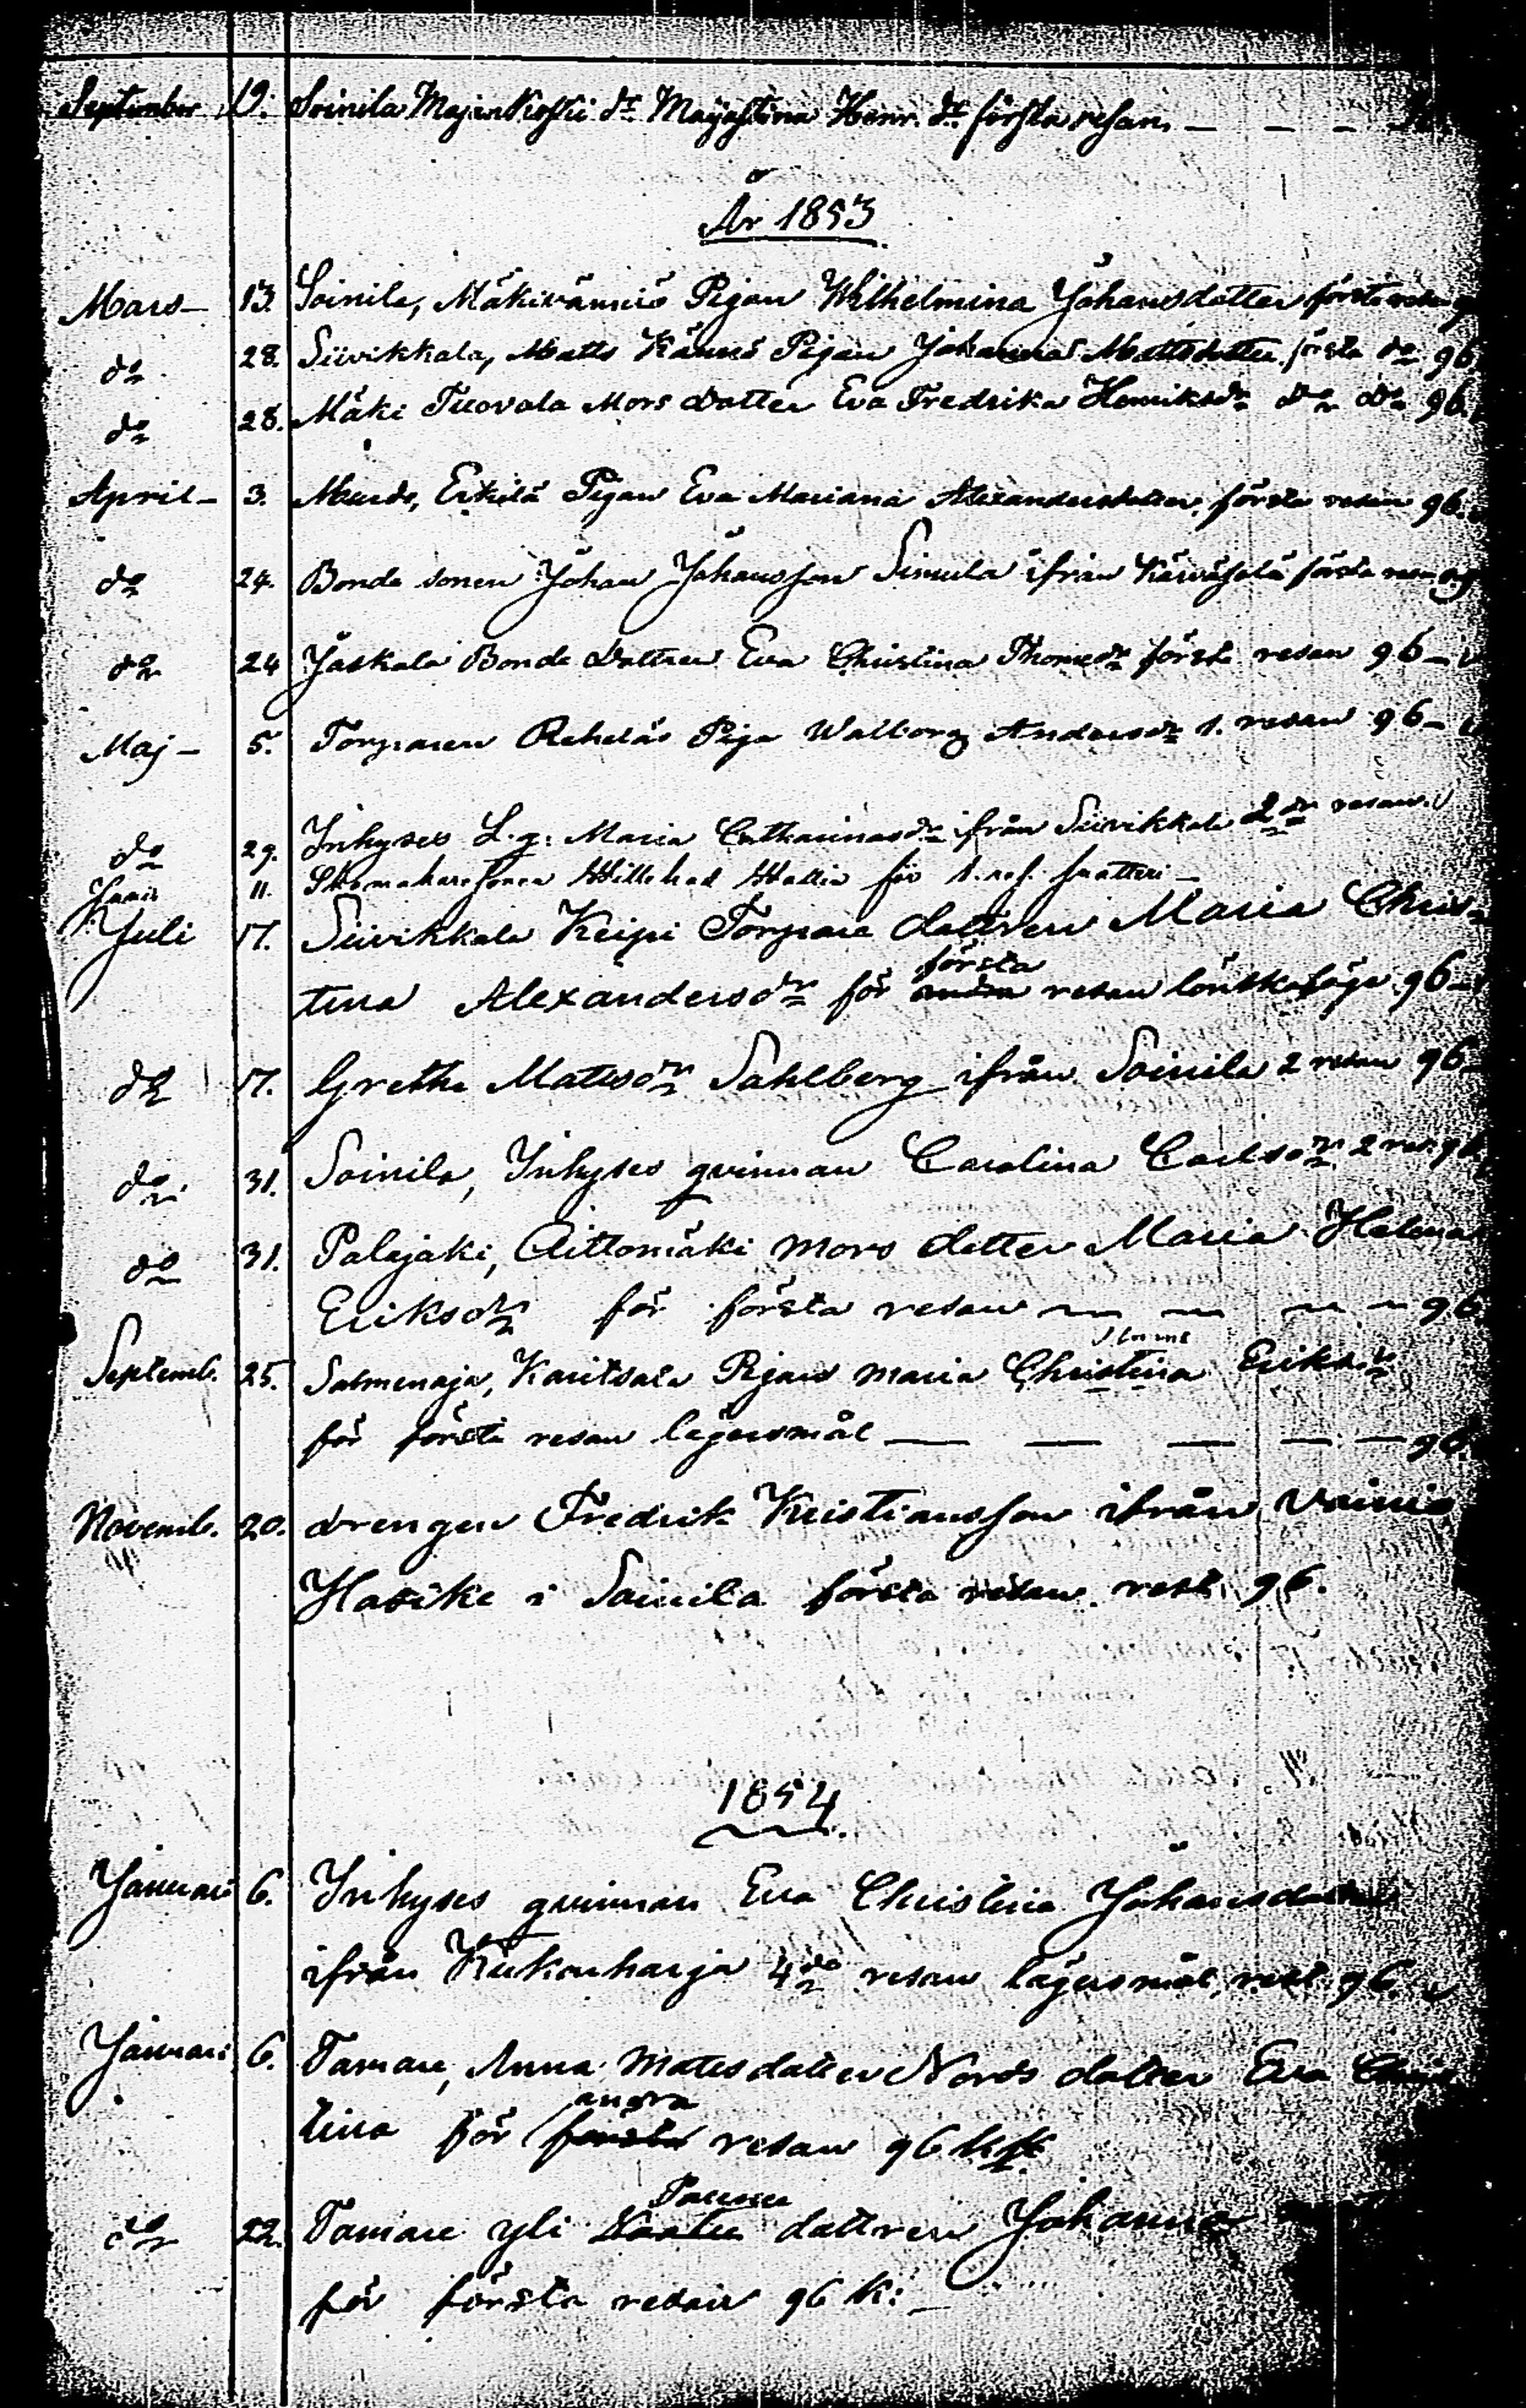 September 19. Soinila Majankoski dr Majastina Henr. dr första resan. — — —
År 1853
Mars — 13. Soinila, Mäkivännis Pigan Wilhelmina Johansdotter första resan
do 28. Siivikkala, Matts Kännös Pigan Johanna Mattsdotter första do 96.
do 28. Mäki Tuovola Mors dotter Eva Fredrika Henriksdr do do 96.
April — 3. Erkilä Pigan Eva Mariana Alexandersdotter, första resan 96.
do 24. Bonde sonen Johan Johansson Simula ifrån första resan
do 24 Jäskala Bonde Dottren Eva Christina Thomasdr första resan 96 —
Maj — 5. Torparen Reheläs Piga Walborg Andersdr 1. resan 96 —
do 29. Inhyses L. g: Maria Catharinasdr ifrån Siivikkala 2dra resan.
Junii 11. Skomakaresonen Willehad Wallin för 1. res.
Juli 17. Siivikkala Keipi Torpare dottren Maria Chris-
första
tina Alexandersdr för andra resan lönskaläge 96 —
do 17. Gretha Mattsdr Sahlberg ifrån Soinila 2 resan 96 —
do 31. Soinila, Inhyses qvinnan Carolina Carlsdr 2 res. 96
do 31. Palajaki, Aittomäki mors dotter Maria Helena
Eriksdr för första resan — — — — 96.
Septemb. 25. Salmenoja, Karitsala Pigan Maria Christina Eriksdr
för första resan lägersmål — — — — — 96.
Novemb. 20. drengen Fredrik Kristiansson ifrån Vainio
Hasike i Soinila första resan rest. 96.
1854
Januari 6. Inhyses qvinnan Eva Christina Johansdotter
ifrån Kiukonharja 4de resan lägersmål, rest. 96.
Januari 6. Tamare, Anna Mattsdotter Nords dotter Eva Chris
andra
tina för första resan 96 kop.
do 22. Tamare yli dottren Johanna
för första resan 96 K: —